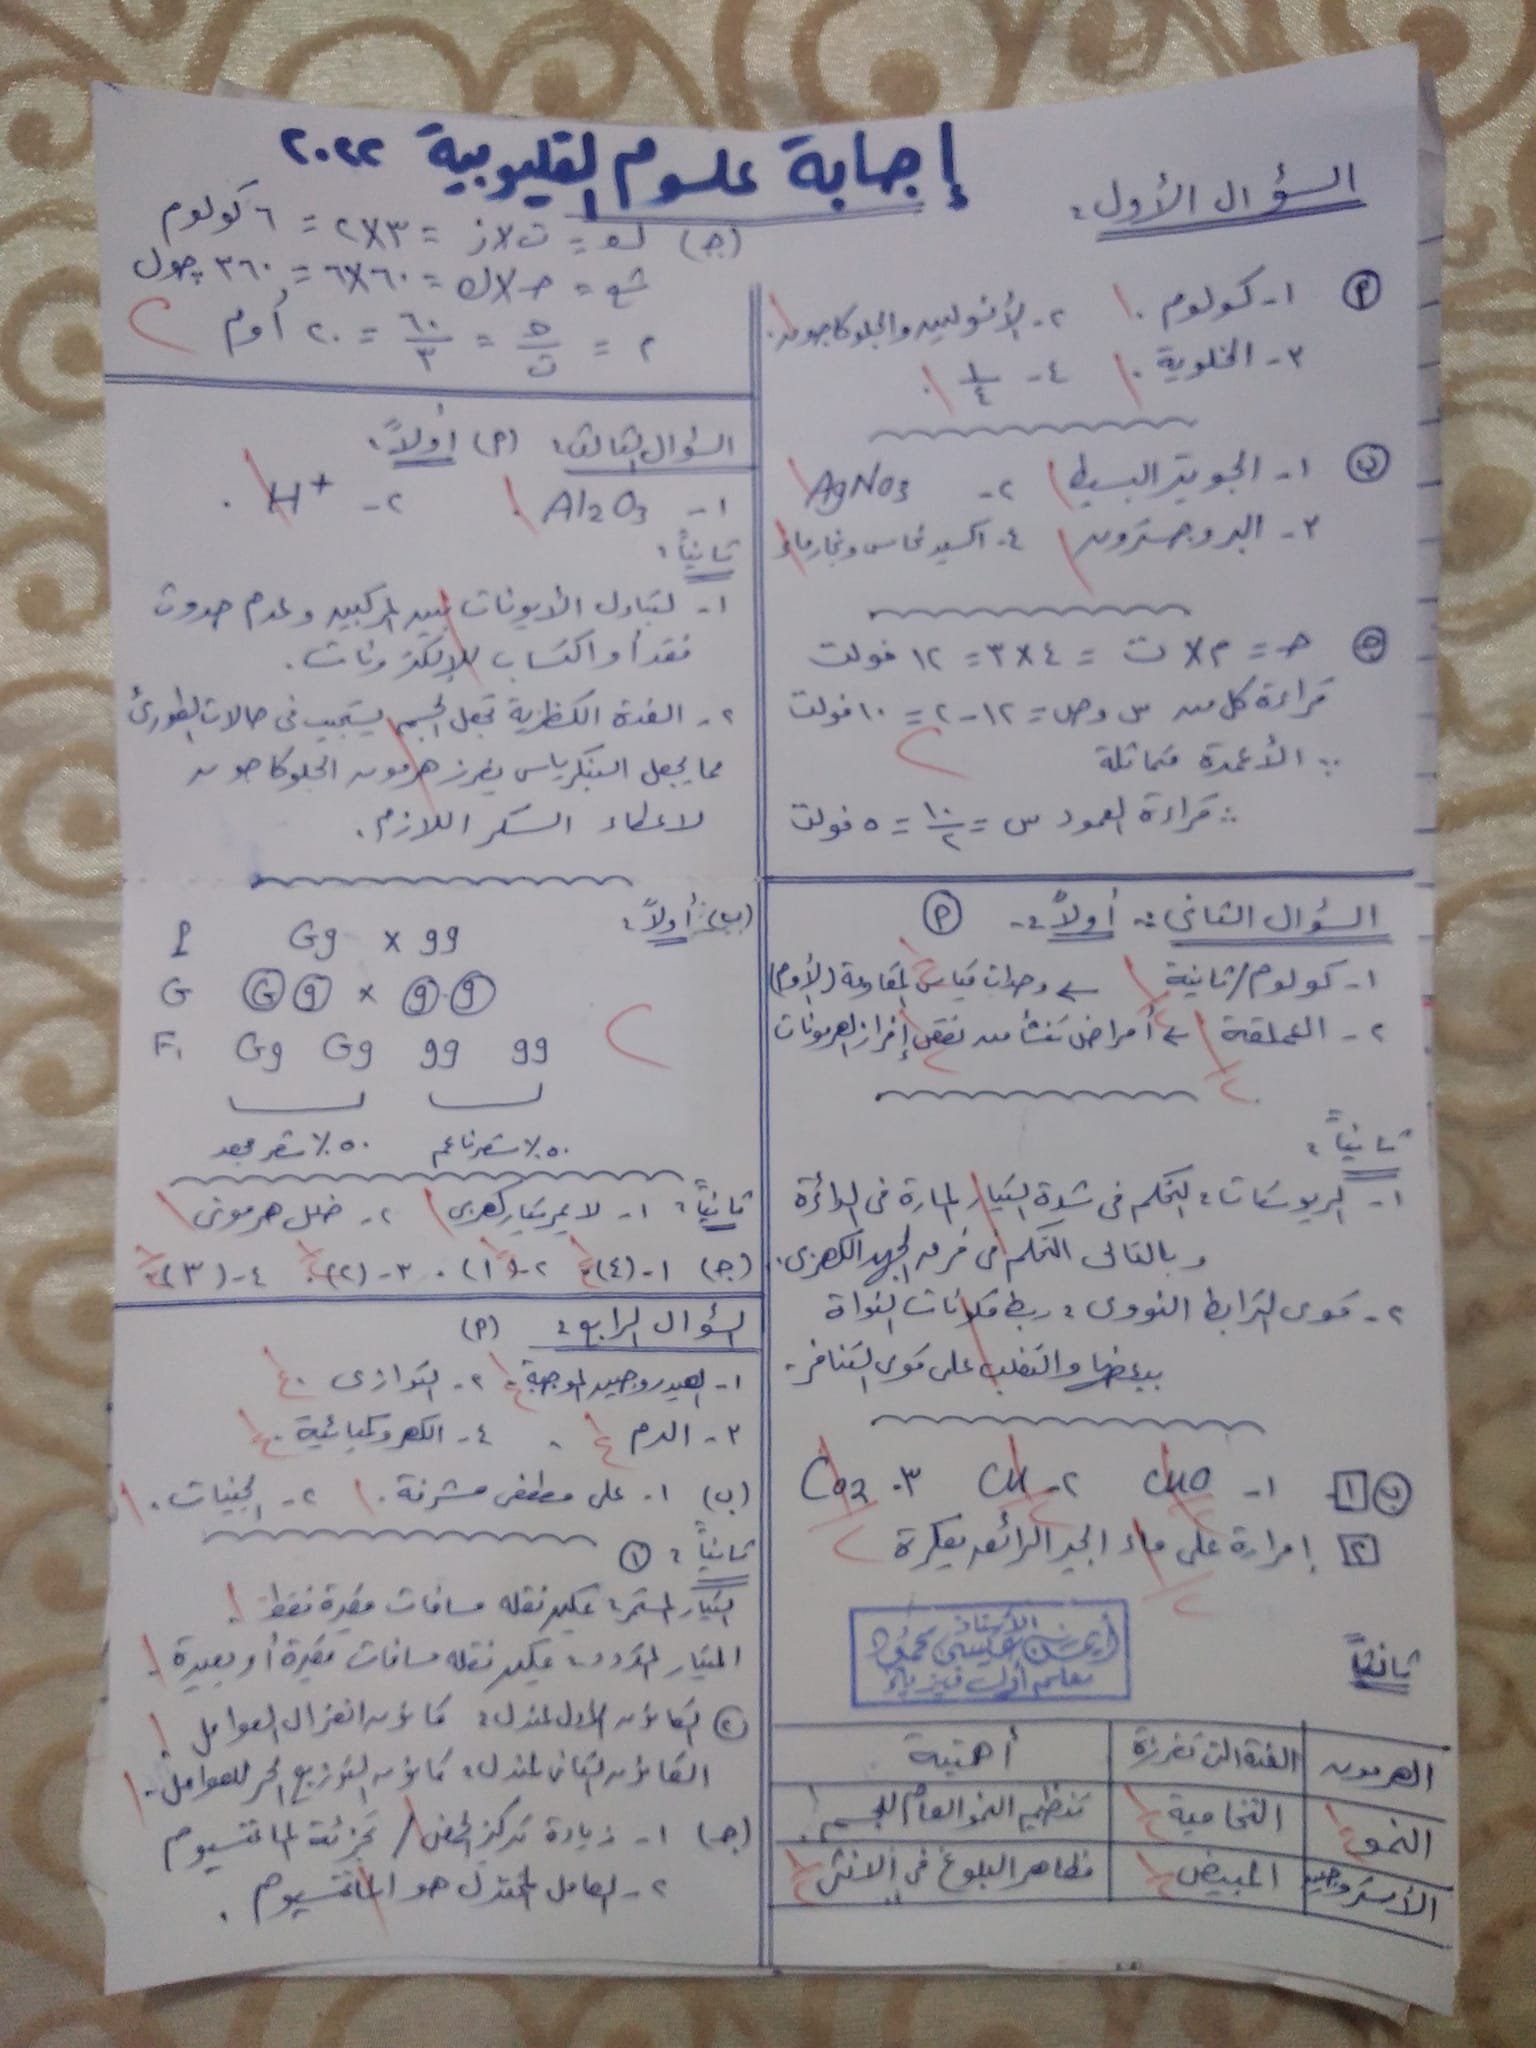 إجابة علوم القليوبية ٢٠٢٢
السؤال الأول :
(P) ١- كولوم . ٢- الأنسولين والجلوكاجون .
٣- الخلوية . ٤- ١/٤ .
(ب) ١- الجويتر البسيط ٢- AgNO3
٣- البروجسترون ٤- أكسيد نحاس وبخار ماء
(ج) جـ = م × ت = ٤ × ٣ = ١٢ فولت
قراءة كل من س وص = ١٢ - ٢ = ١٠ فولت
∵ الأعمدة متماثلة
∴ قراءة العمود س = ١٠/٢ = ٥ فولت
السؤال الثانى :- أولاً :- (P)
١- كولوم/ثانية ← وحدات قياس المقاومة (الأوم)
٢- العملقة ← أمراض تنشأ من نقص إفراز الهرمونات
ثانياً :
١- الريوستات : التحكم فى شدة التيار المارة فى الدائرة
وبالتالى التحكم فى فرق الجهد الكهربى .
٢- قوى الترابط النووى : ربط مكونات النواة
ببعضها والتغلب على قوى التنافر .
(ب) [١]- ١- CuO ٢- Cu ٣- CO2
[٢] إمراره على ماء الجير الرائق يعكره
الأستاذ
أيمن عيسى محمود
معلم أول فيزياء
ثالثاً
الهرمون الغدة التى تفرزه أهميته
النمو النخامية تنظيم النمو العام للجسم .
الأستروجين المبيض مظاهر البلوغ فى الأنثى
(جـ) ك = ت × ز = ٣ × ٢ = ٦ كولوم
شغ = جـ × ك = ٦٠ × ٦ = ٣٦٠ جول
م = جـ/ت = ٦٠/٣ = ٢٠ أوم
السؤال الثالث : (P) أولاً :
١- Al2O3 . ٢- H+ .
ثانياً :
١- لتبادل الأيونات بين المركبين وعدم حدوث
فقد أو اكتساب للإلكترونات .
٢- الغدة الكظرية تجعل الجسم يستجيب فى حالات الطورئ
مما يجعل البنكرياس يفرز هرمون الجلوكاجون
لاعطاء السكر اللازم .
(ب) : أولاً :
P Gg × gg
G G g × g g
F1 Gg Gg gg gg
٥٠٪ شعر مجعد ٥٠٪ شعر ناعم
ثانياً : ١- لا يمر تيار كهربى ٢- خلل هرمونى
(جـ) ١- (٤) . ٢- (١) . ٣- (٢) . ٤- (٣) .
السؤال الرابع : (P)
١- الهيدروجين الموجبة . ٢- التوازى .
٣- الدم . ٤- الكهروكيميائية .
(ب) ١- على مصطفى مشرفة . ٢- الجينات .
ثانياً : (١)
التيار المستمر : يمكن نقله مسافات قصيرة فقط .
التيار المتردد : يمكن نقله مسافات قصيرة أو بعيدة .
(٢) القانون الأول لمندل : قانون انعزال العوامل .
القانون الثانى لمندل : قانون التوزيع الحر للعوامل .
(جـ) ١- زيادة تركيز الحمض / تجزئة الماغنسيوم
٢- العامل المختزل هو الماغنسيوم .